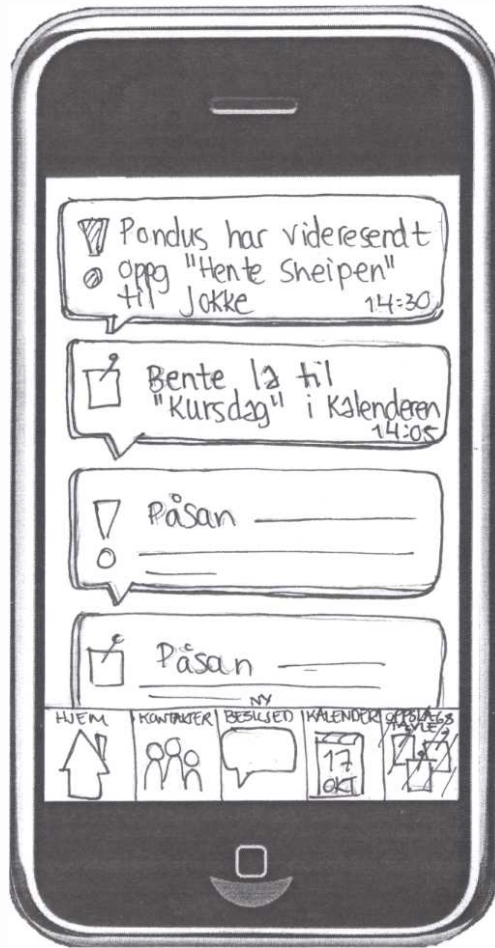 Pondus har videresendt
oppg "Hente Sneipen"
til Jokke 14:30
Bente la til
"Kursdag" i Kalenderen
14:05
Påsan
Påsan
NY
HJEM KONTAKTER BESKJED KALENDER OPPSLAGS
TAVLE
17
OKT